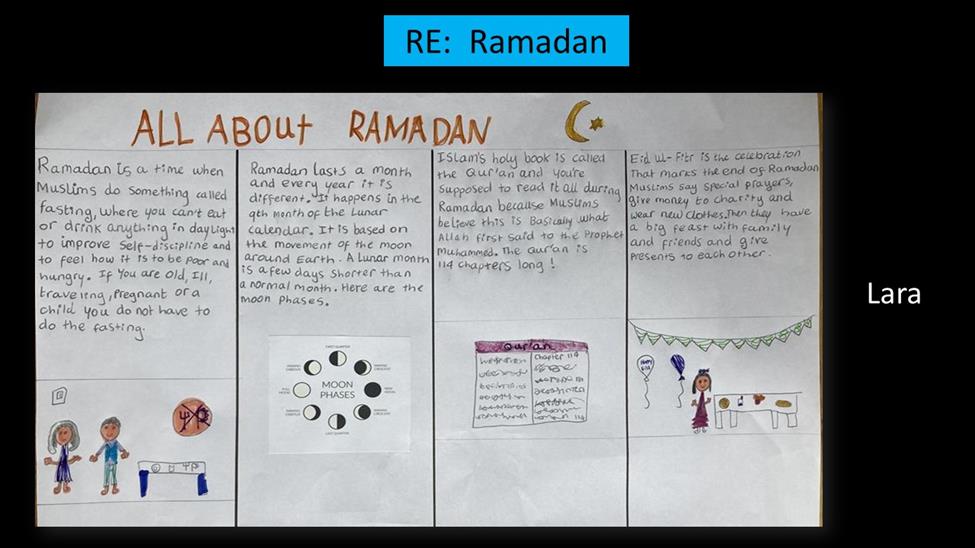 RE: Ramadan
ALL ABOUt RAMADAN
Ramadan is a time when
Muslims do something called
fasting, where you can't eat
or drink anything in daylight
to improve self-discipline and
to feel how it is to be poor and
hungry. If you are old, Ill,
traveling, pregnant or a
child you do not have to
do the fasting.
Ramadan lasts a month
and every year it is
different. It happens in the
9th month of the Lunar
calendar. It is based on
the movement of the moon
around Earth. A Lunar month
is a few days shorter than
a normal month. Here are the
moon phases.
FIRST QUARTER
MOON
PHASES
LAST QUARTER
Islam's holy book is called
the Qur'an and you're
supposed to read it all during
Ramadan because Muslims
believe this is Basically what
Allah first said to the Prophet
Muhammed. The Qur'an is
114 chapters long!
Qur'an
Chapter 114
Eid Ul-Fitr is the celebration
That marks the end of Ramadan
Muslims say special prayers,
give money to charity and
wear new clothes. Then they have
a big feast with family
and friends and give
presents to each other.
Lara